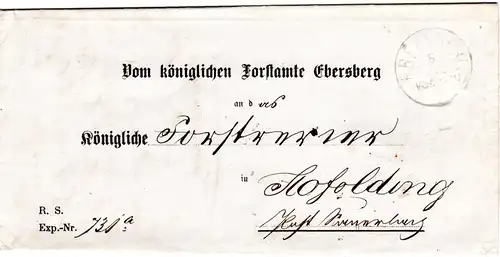 Vom königlichen Forstamte Ebersberg
an das
Königliche Forstrevier
in Hofolding
Post Sauerlach
R. S.
Exp.-Nr. 731a